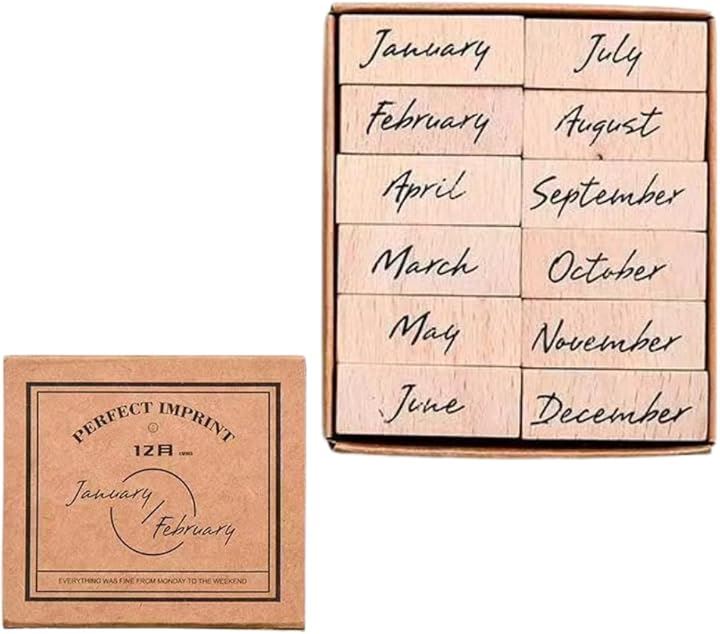 January
July
February
August
April
September
March
October
May
November
June
December
PERFECT IMPRINT
12月
January
/
February
EVERYTHING WAS FINE FROM MONDAY TO THE WEEKEND